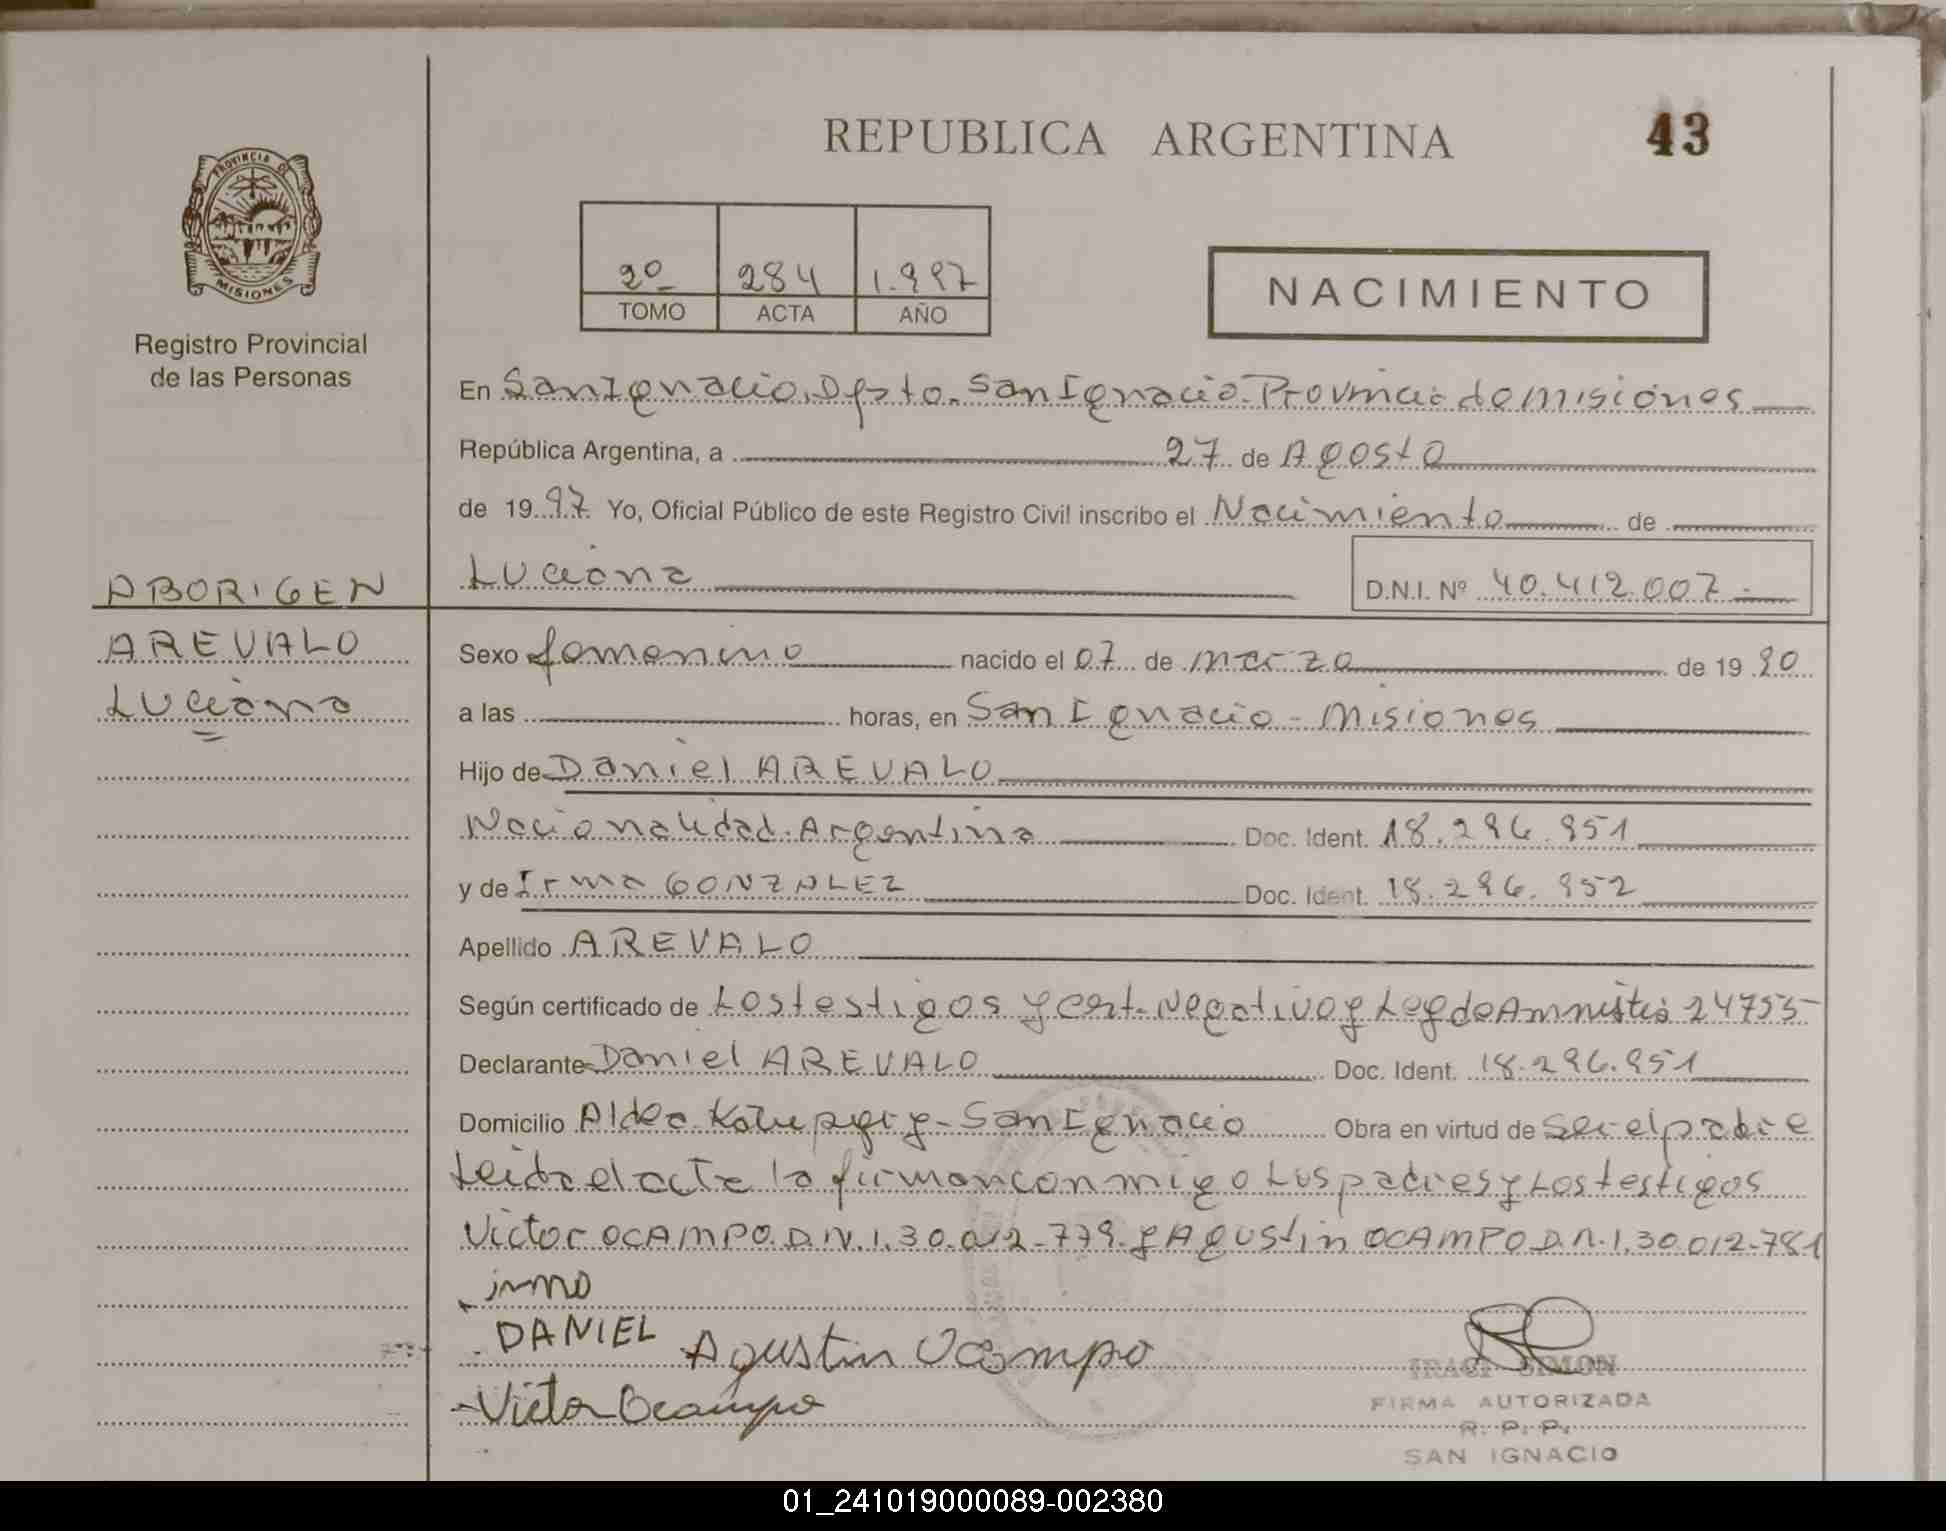 REPUBLICA ARGENTINA
43
PROVINCIA DE
MISIONES
Registro Provincial
de las Personas
2º
284
1.997
TOMO
ACTA
AÑO
NACIMIENTO
En San Ignacio, Dpto. San Ignacio Provincia de Misiones
República Argentina, a 27 de Agosto
de 1997 Yo, Oficial Público de este Registro Civil inscribo el Nacimiento de
Luciana
D.N.I. Nº 40.412.007.-
ABORIGEN
AREVALO
Luciana
Sexo femenino nacido el 07 de marzo de 1990
a las horas, en San Ignacio - Misiones
Hijo de Daniel AREVALO
Nacionalidad Argentina Doc. Ident. 18.296.951
y de Irma GONZALEZ Doc. Ident. 18.296.952
Apellido AREVALO
Según certificado de Los testigos y cert. Negativo y Ley de Amnistia 24755-
Declarante Daniel AREVALO Doc. Ident. 18.296.951
Domicilio Aldea Katupyry - San Ignacio Obra en virtud de ser el padre
Leida el acta la firman conmigo Los padres y Los testigos
Victor OCAMPO. D.N.I. 30.012-779. y Agustin OCAMPO D.N.I. 30.012-781
DANIEL
Agustin Ocampo
Victor Ocampo
IRACI SIMON
FIRMA AUTORIZADA
R. P. P.
SAN IGNACIO
01_241019000089-002380